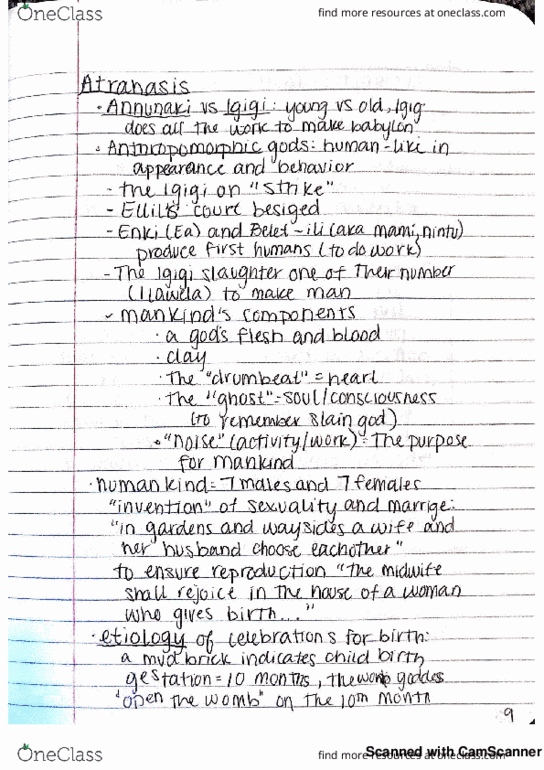 OneClass
find more resources at oneclass.com
Atrahasis
· Annunaki vs Igigi: young vs old, Igig
does all the work to make babylon
· Anthropomorphic gods: human-like in
appearance and behavior
- the Igigi on "strike"
- Ellil's court besiged
- Enki (Ea) and Belet-ili (aka mami, nintu)
produce first humans (to do work)
- The Igigi slaughter one of their number
(Ilawela) to make man
- mankind's components
· a god's flesh and blood
· clay
· The "drumbeat" = heart
· The "ghost" = soul/consciousness
(to remember slain god)
· "noise" (activity/work) = The purpose
for mankind
· humankind = 7 males and 7 females
"invention" of sexuality and marrige:
"in gardens and waysides a wife and
her husband choose eachother"
to ensure reproduction "the midwife
shall rejoice in the house of a woman
who gives birth..."
· etiology of celebrations for birth:
a mud brick indicates child birth
gestation = 10 months, the womb goddes
"open the womb" on the 10th month
9
OneClass
find more resources at oneclass.com
Scanned with CamScanner